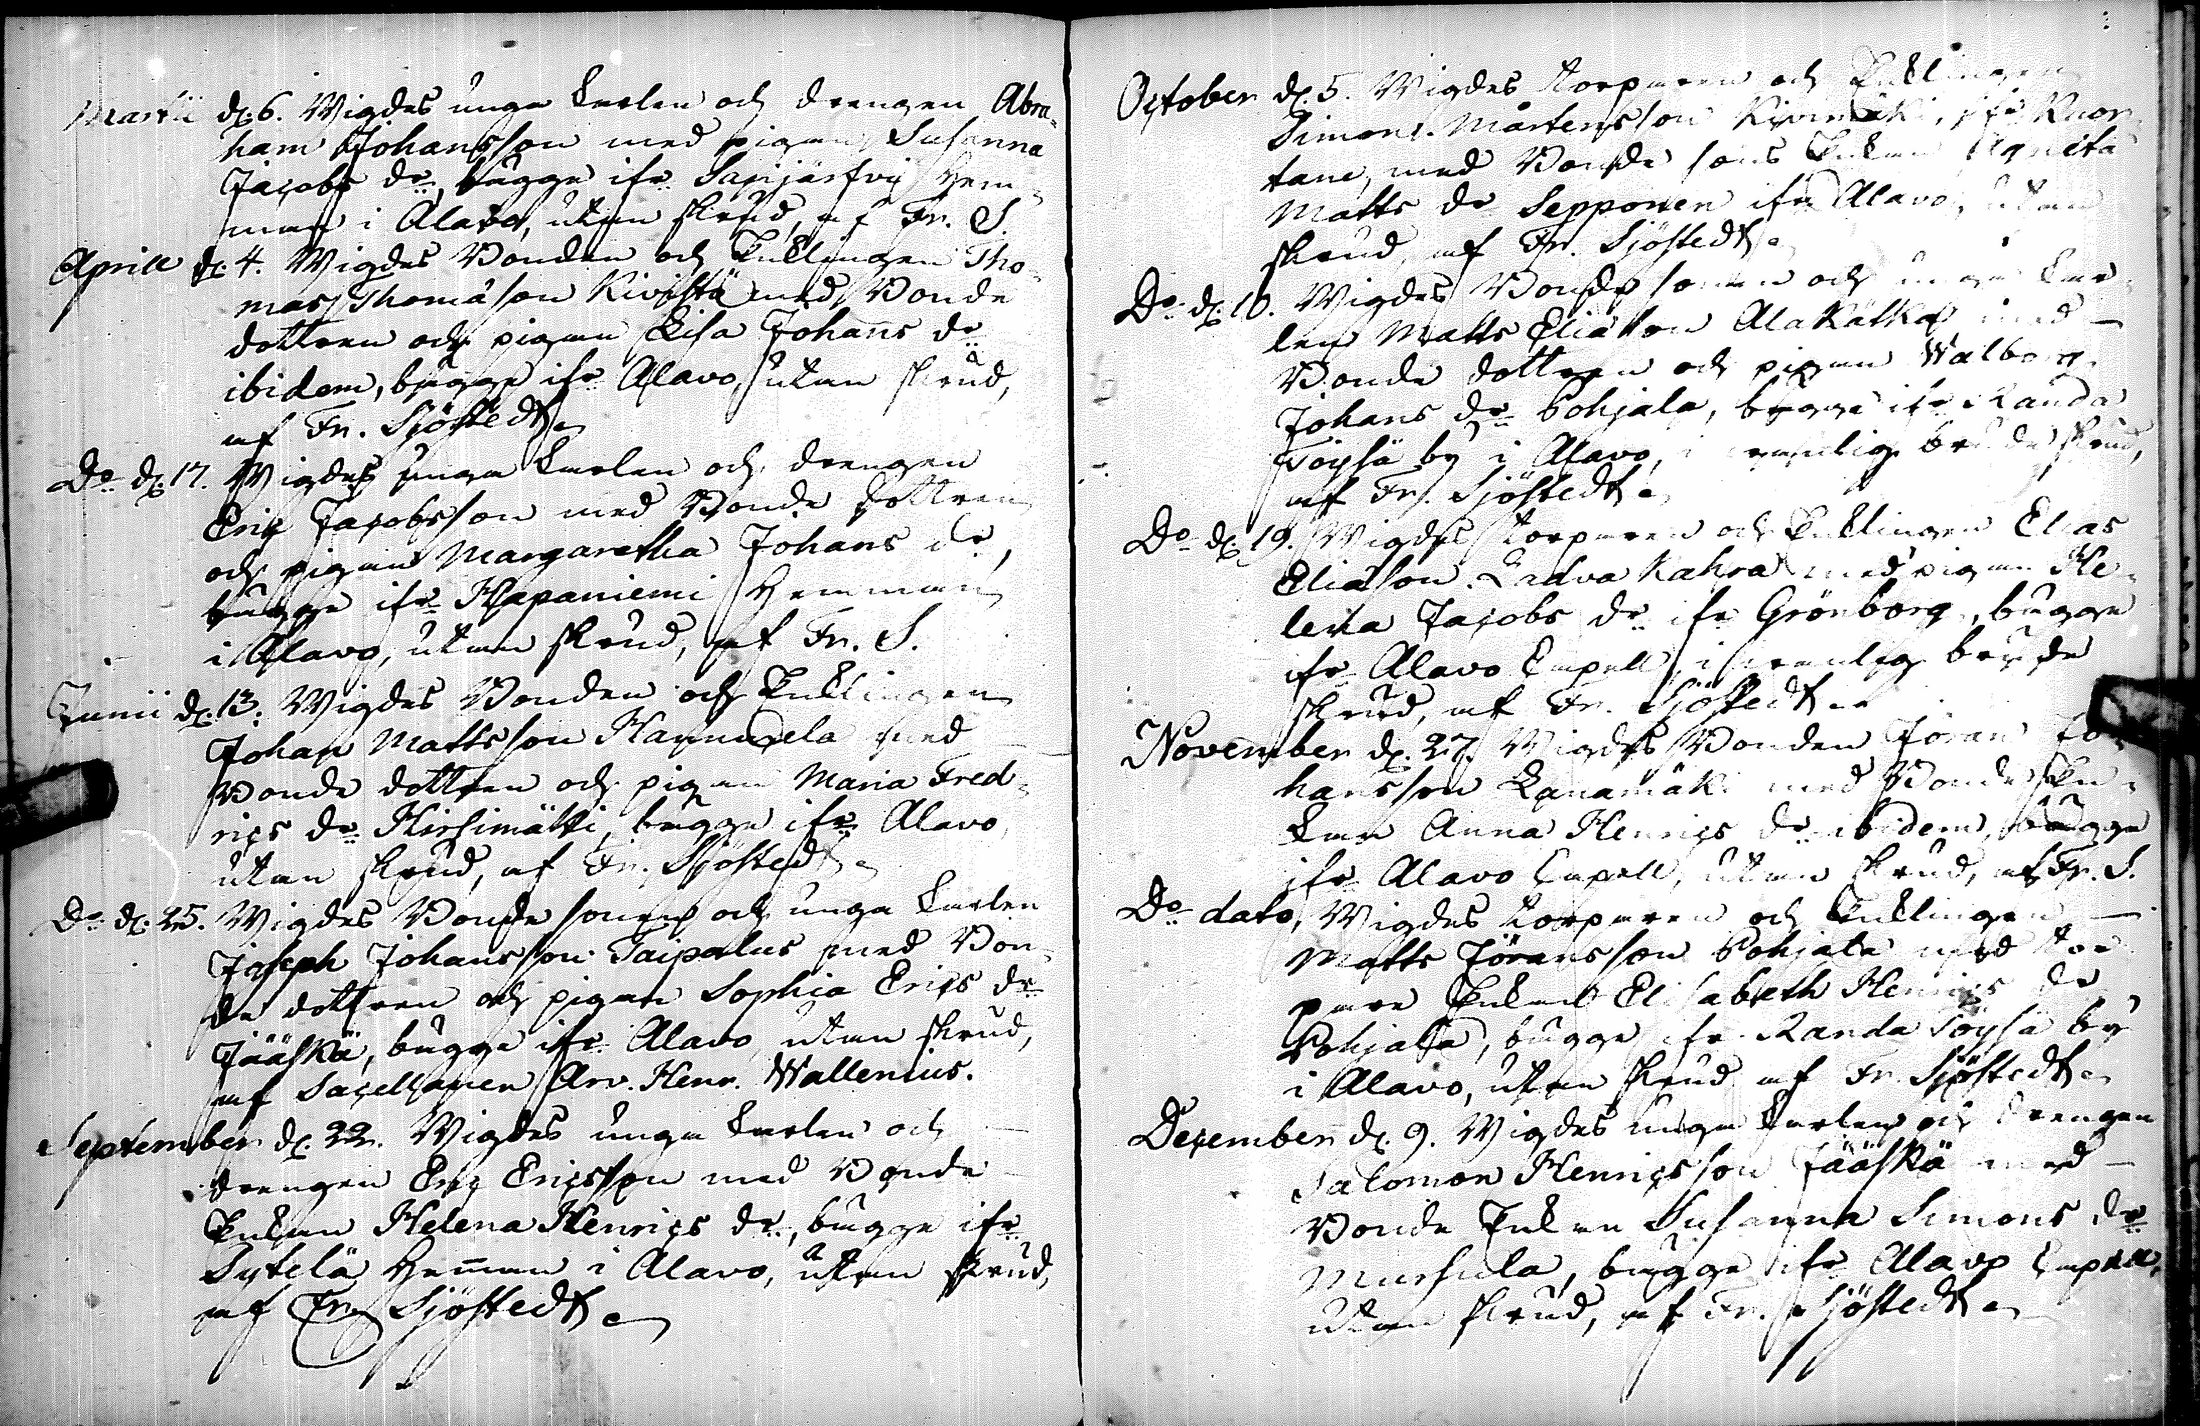 Martii d. 6. Wigdes unga Karlen och drengen Abra-
ham Johansson med pigan Susanna
Jacobs dr, bägge ifr Sapsjärfvi Hem-
man i Alavo, utan skrud, af Fr. S.
Aprill d. 4. Wigdes Bonden och Enklingen Tho-
mas Thomason Kivistö med Bonde
dottren och pigan Lisa Johans dr
ibidem, bägge ifr Alavo, utan skrud,
af Fr. Sjöstedt.
Do d. 17. Wigdes unga Karlen och drengen
Eric Jacobsson med Bonde dottren
och pigan Margaretha Johans dr,
bägge ifr Hapaniemi Hemman
i Alavo, utan skrud, af Fr. S.
Junii d. 13. Wigdes Bonden och Enklingen
Johan Mattsson Hannuxela med
Bonde dottren och pigan Maria Fred-
rics dr Hirsimätti, bägge ifr Alavo,
utan skrud, af Fr. Sjöstedt.
Do d. 25. Wigdes Bonde sonen och unga Karlen
Joseph Johansson Taipalus med Bon-
de dottren och pigan Sophia Erics dr
Jääskä, bägge ifr Alavo, utan skrud,
af Sacellanen Arv. Henr. Wallenius.
September d. 22. Wigdes unga Karlen och
drengen Eric Ericsson med Bonde
Enkan Helena Henrics dr, bägge ifr
Sytelä Hemman i Alavo, utan skrud,
af Fr. Sjöstedt.
October d. 5. Wigdes torparen och Enklingen
Simon Mårtensson Kivimäki, ifr Kuor-
tane, med Bonde sons Enkan Agneta
Matts dr Sepponen ifr Alavo, utan
skrud, af Fr. Sjöstedt.
Do d. 10. Wigdes Bonde sonen och unga Kar-
len Matts Eliasson Alakätkä med
Bonde dottren och pigan Walborg
Johans dr Pohjala, bägge ifr Randa
Töysä by i Alavo, i brude skrud,
af Fr. Sjöstedt.
Do d. 19. Wigdes torparen och Enklingen Elias
Eliason Ladva Kahra med pigan He-
lena Jacobs dr ifr Grönborg, bägge
ifr Alavo Capell, i brude
skrud, af Fr. Sjöstedt.
November d. 27. Wigdes Bonden Jöran Jo-
hansson Ranamäki med Bonde En-
kan Anna Henrics dr ibidem, bägge
ifr Alavo Capell, utan skrud, af Fr. S.
Do dato, Wigdes torparen och Enklingen
Matts Jöransson Pohjala med tor-
pare Enkan Elisabeth Henrics dr
Pohjala, bägge ifr Randa Töysä by
i Alavo, utan skrud af Fr. Sjöstedt.
December d. 9. Wigdes unga Karlen och drengen
Salomon Henricsson Jääskä med
Bonde Enkan Susanna Simons dr
Mursula, bägge ifr Alavo Capell,
utan skrud, af Fr. Sjöstedt.